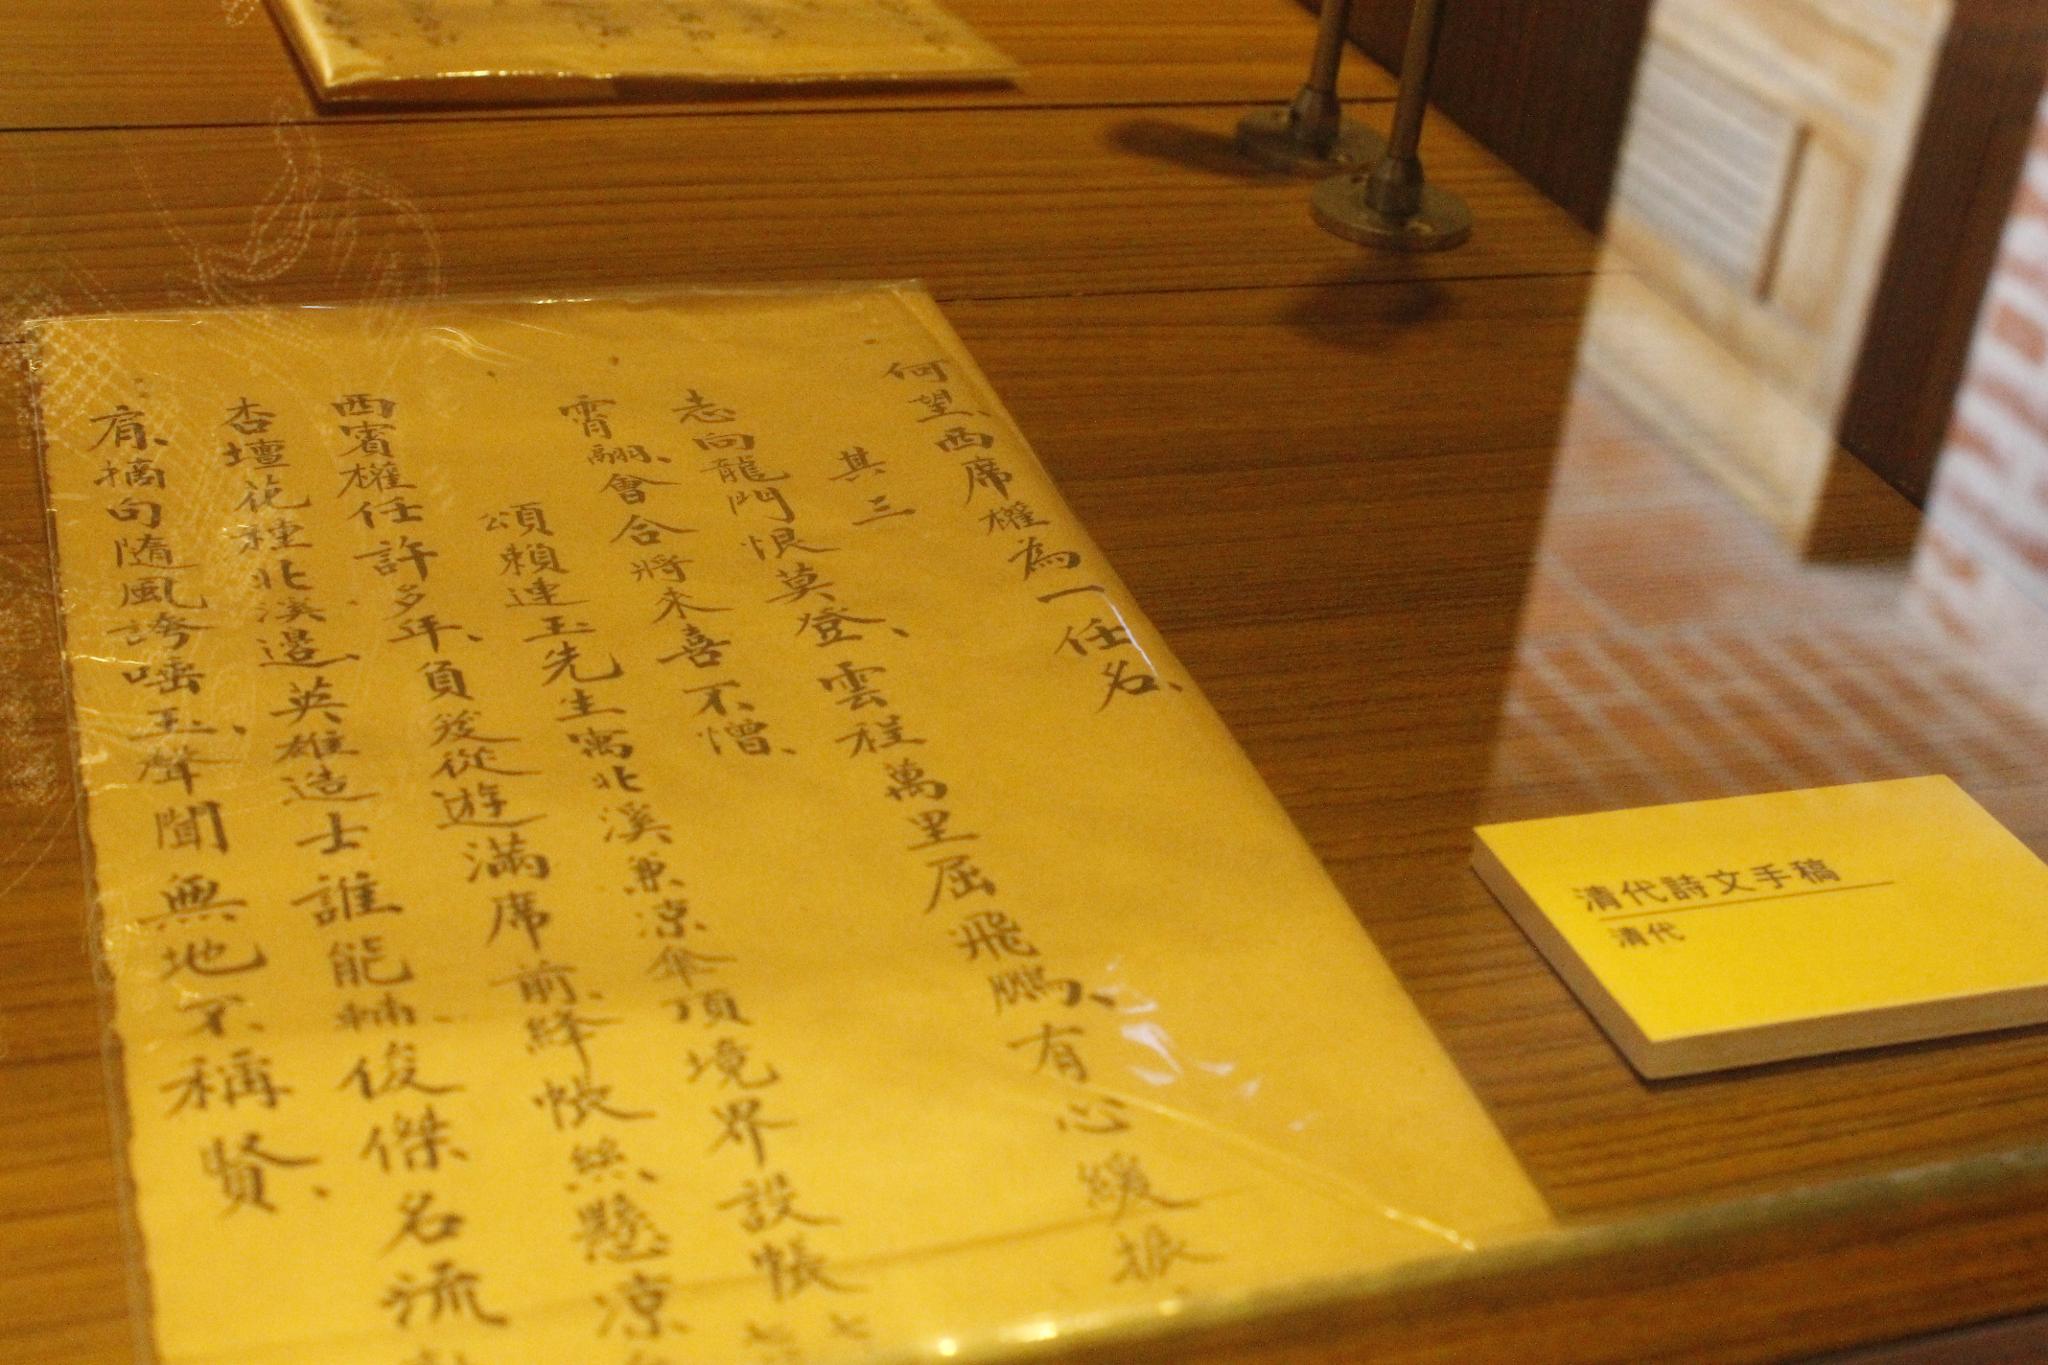 何望、西席權為一任名、
其三
志向龍門恨莫登、雲程萬里屈飛鵬、有心緩振
霄翮、會合將來喜不憎、
頌賴連玉先生寓北溪兼凉傘頂境界設帳七
西賓權任許多年、負笈從遊滿席前、絳帳無懸凉
杏壇花種北溪邊、英雄造士誰能沛、俊傑名流
肩、摘句隨風誇唾玉、聲聞無地不稱賢、
清代詩文手稿
清代